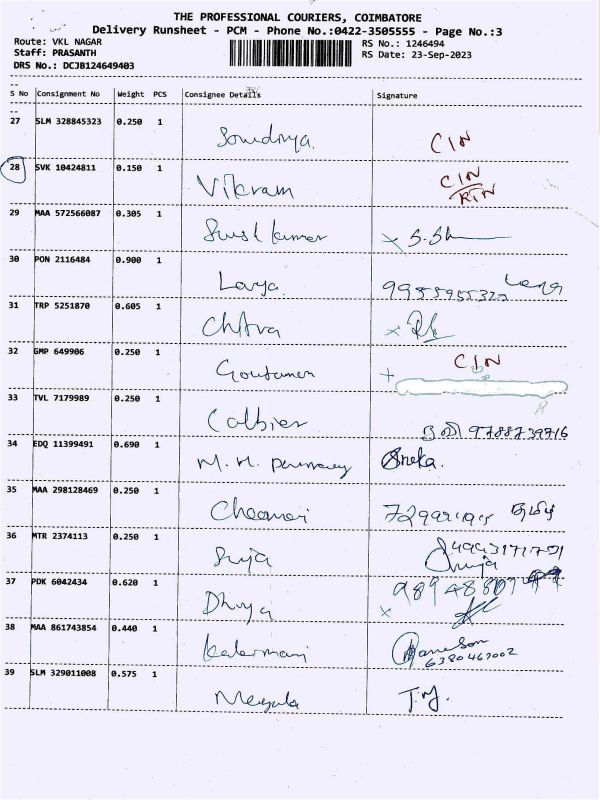 THE PROFESSIONAL COURIERS, COIMBATORE
Delivery Runsheet - PCM - Phone No.:0422-3505555 - Page No.:3
Route: VKL NAGAR
RS No.: 1246494
Staff: PRASANTH
RS Date: 23-Sep-2023
DRS No.: DCJB124649403
S No Consignment No Weight PCS Consignee Details Signature
27 SLM 328845323 0.250 1 Sowdhya. CIN
28 SVK 10424811 0.150 1 Vikram CIN
RTN
29 MAA 572566087 0.305 1 kumar
30 PON 2116484 0.900 1 Lavya
31 TRP 5251870 0.605 1 Chitra
32 GMP 649906 0.250 1 CIN
33 TVL 7179989 0.250 1 9788739716
34 EDQ 11399491 0.690 1 M. M. Sneka.
35 MAA 298128469 0.250 1
36 MTR 2374113 0.250 1 Suja
37 PDK 6042434 0.620 1 Dhivya
38 MAA 861743854 0.440 1
6380467002
39 SLM 329011008 0.575 1 Megala T.M.